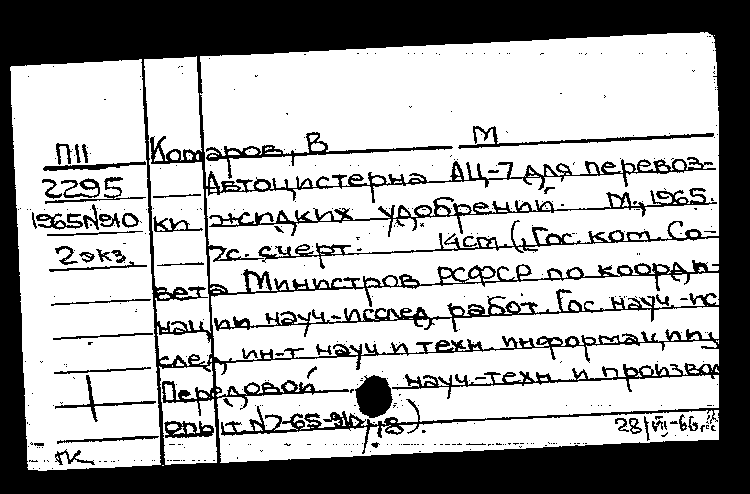 ПII Котаров, В М
2295 Автоцистерна АЦ-7 для перевоз-
1965N910 ки жидких удобрений. М., 1965.
2 экз. 2с. с черт. 14см. (Гос. ком. Со-
вета Министров РСФСР по коорди-
нации науч.-исслед. работ. Гос. науч.-ис
след. ин-т науч. и техн. информации
Передовой науч.-техн. и производ
опыт. N7-65-910/48).
28/VII-66г.
ПК